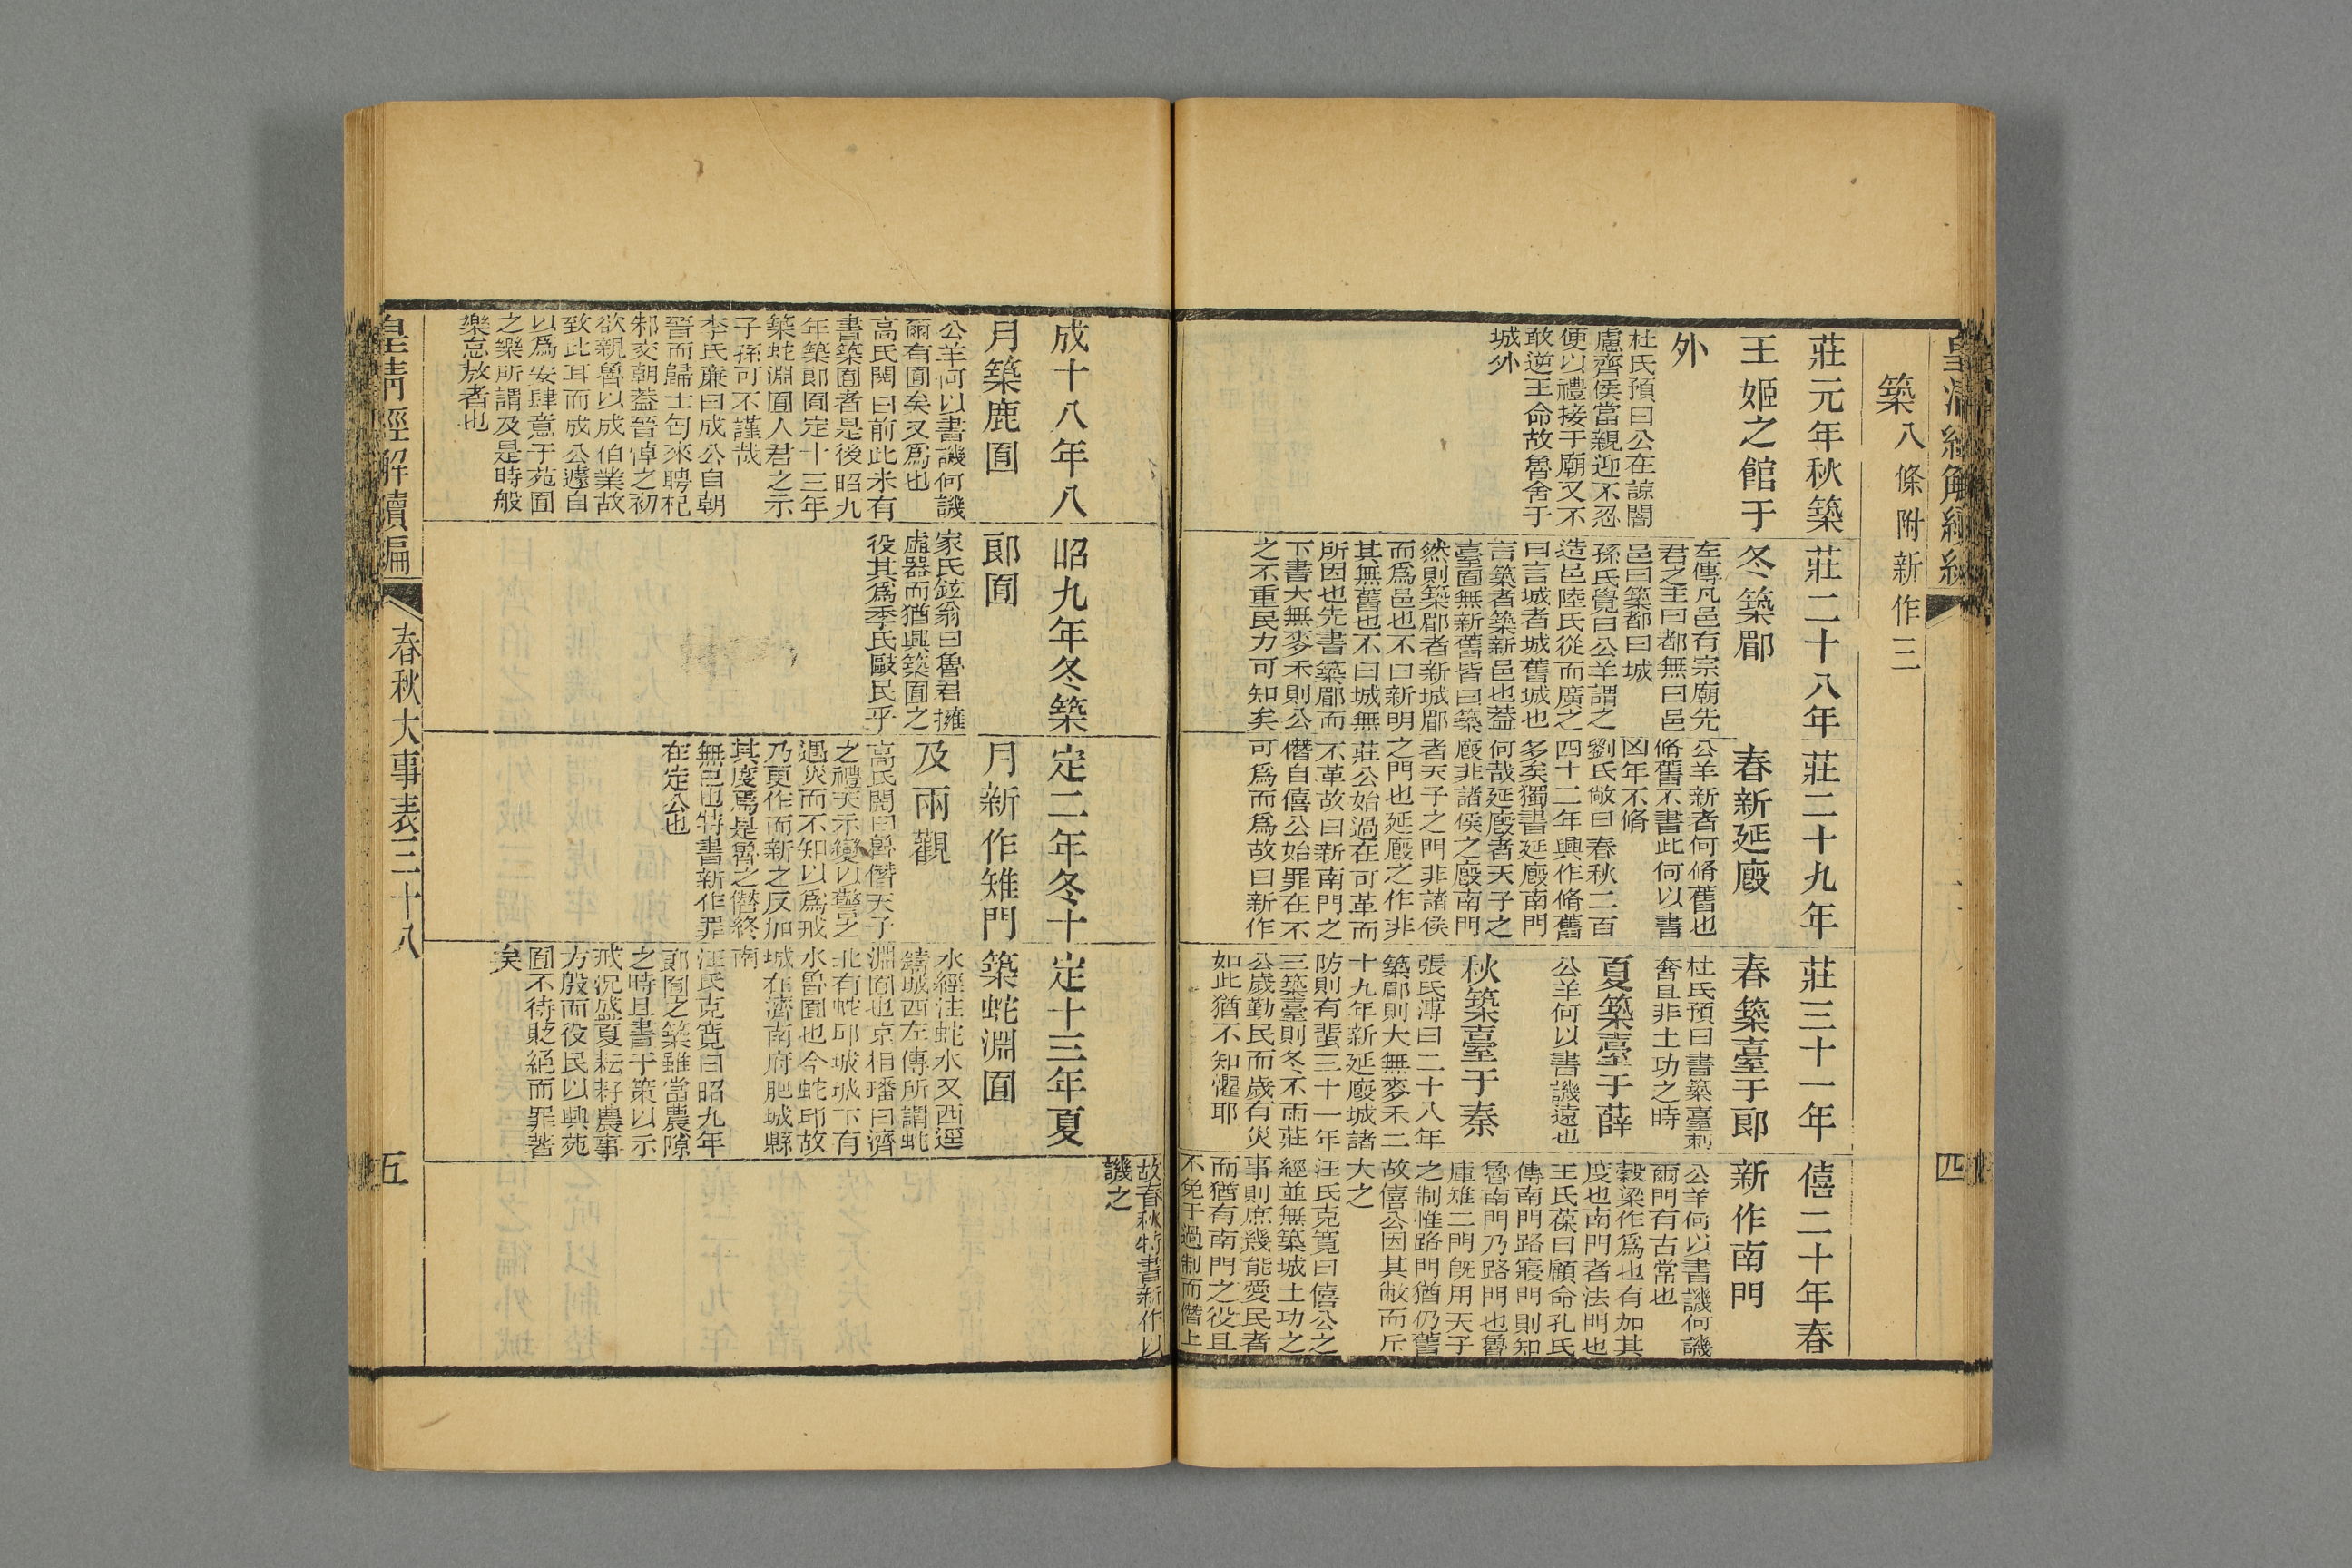 皇清經解續編
四
築八條附新作三
莊元年秋築
王姬之館于
外
杜氏預曰公在諒闇
慮齊侯當親迎不忍
便以禮接于廟又不
敢逆王命故魯舍于
城外
莊二十八年
冬築郿
左傳凡邑有宗廟先
君之主曰都無曰邑
邑曰築都曰城
孫氏覺曰公羊謂之
造邑陸氏從而廣之
曰言城者城舊城也
言築者築新邑也蓋
臺囿無新舊皆曰築
然則築郿者新城郿
而為邑也不曰新明
其無舊也不曰城無
所因也先書築郿而
下書大無麥禾則公
之不重民力可知矣
莊二十九年
春新延廏
公羊新者何脩舊也
脩舊不書此何以書
凶年不脩
劉氏敞曰春秋二百
四十二年興作脩舊
多矣獨書延廏南門
何哉延廏者天子之
廏非諸侯之廏南門
者天子之門非諸侯
之門也延廏之作非
莊公始過在可革而
不革故曰新南門之
僭自僖公始罪在不
可為而為故曰新作
莊三十一年
春築臺于郎
杜氏預曰書築臺刺
奢且非土功之時
夏築臺于薛
公羊何以書譏遠也
秋築臺于秦
張氏溥曰二十八年
築郿則大無麥禾二
十九年新延廏城諸
防則有蜚三十一年
三築臺則冬不雨莊
公歲勤民而歲有災
如此猶不知懼耶
僖二十年春
新作南門
公羊何以書譏何譏
爾門有古常也
穀梁作為也有加其
度也南門者法門也
王氏葆曰顧命孔氏
傳南門路寢門則知
魯南門乃路門也魯
庫雉二門旣用天子
之制惟路門猶仍舊
故僖公因其敝而斥
大之
汪氏克寬曰僖公之
經並無築城土功之
事則庶幾能愛民者
而猶有南門之役且
不免于過制而僭上
故春秋特書新作以
譏之
成十八年八
月築鹿囿
公羊何以書譏何譏
爾有囿矣又為也
高氏閌曰前此未有
書築囿者是後昭九
年築郎囿定十三年
築蛇淵囿人君之示
子孫可不謹哉
李氏廉曰成公自朝
晉而歸士匄來聘杞
邾交朝蓋晉悼之初
欲親魯以成伯業故
致此耳而成公遽自
以為安肆意于苑囿
之樂所謂及是時般
樂怠敖者也
昭九年冬築
郎囿
家氏鉉翁曰魯君擁
虛器而猶興築囿之
役其為季氏敺民乎
定二年冬十
月新作雉門
及兩觀
高氏閌曰魯僭天子
之禮天示變以警之
遇災而不知以為戒
乃更作而新之反加
其度焉是魯之僭終
無已也特書新作罪
在定公也
定十三年夏
築蛇淵囿
水經注蛇水又西逕
鑄城西左傳所謂蛇
淵囿也京相璠曰濟
北有蛇邱城城下有
水魯囿也今蛇邱故
城在濟南府肥城縣
南
汪氏克寬曰昭九年
郎囿之築雖當農隙
之時且書于策以示
戒況盛夏耘耔農事
方殷而役民以興苑
囿不待貶絕而罪著
矣
皇清經解續編
春秋大事表三十八
五